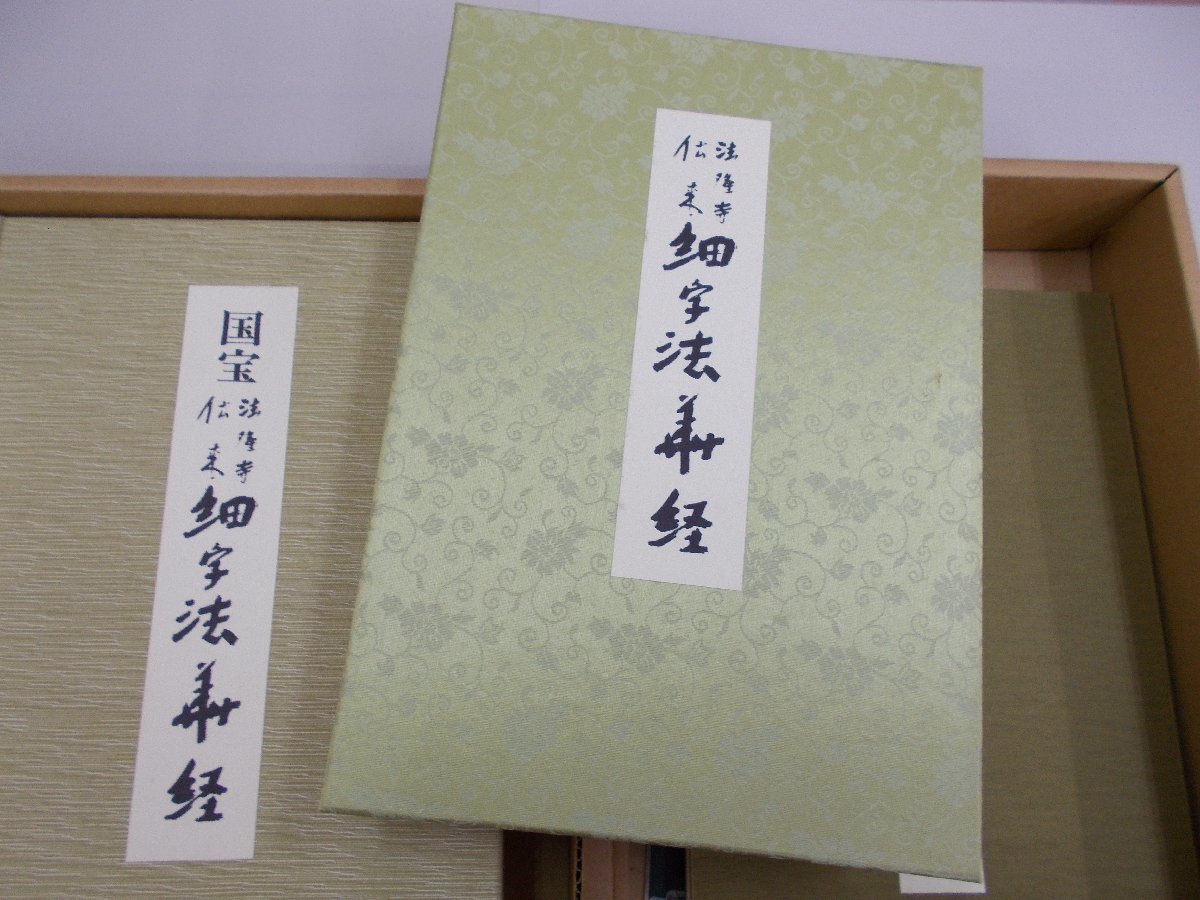 国宝
法隆寺
伝来
細字法華経
法隆寺
伝来
細字法華経